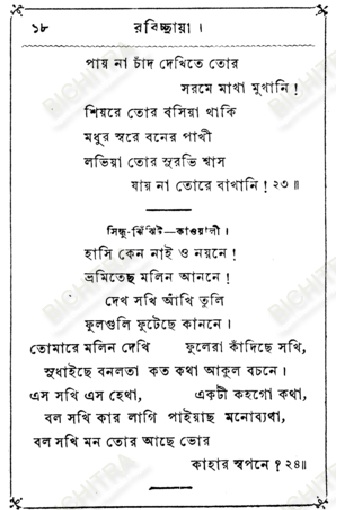 ১৮ রবিচ্ছায়া ।
পায় না চাঁদ দেখিতে তোর
সরমে মাখা মুখানি !
শিয়রে তোর বসিয়া থাকি
মধুর স্বরে বনের পাখী
লভিয়া তোর সুরভি শ্বাস
যায় না তোরে বাখানি ! ২৩॥
সিন্ধু-ঝিঁঝিট—কাওয়ালী ।
হাসি কেন নাই ও নয়নে !
ভ্রমিতেছ মলিন আননে !
দেখ সখি আঁখি তুলি
ফুলগুলি ফুটেছে কাননে ।
তোমারে মলিন দেখি ফুলেরা কাঁদিছে সখি,
সুধাইছে বনলতা কত কথা আকুল বচনে ।
এস সখি এস হেথা, একটী কহগো কথা,
বল সখি কার লাগি পাইয়াছ মনোব্যথা,
বল সখি মন তোর আছে ভোর
কাহার স্বপনে ? ২৪॥
BICHITRA
BICHITRA
BICHITRA
BICHITRA